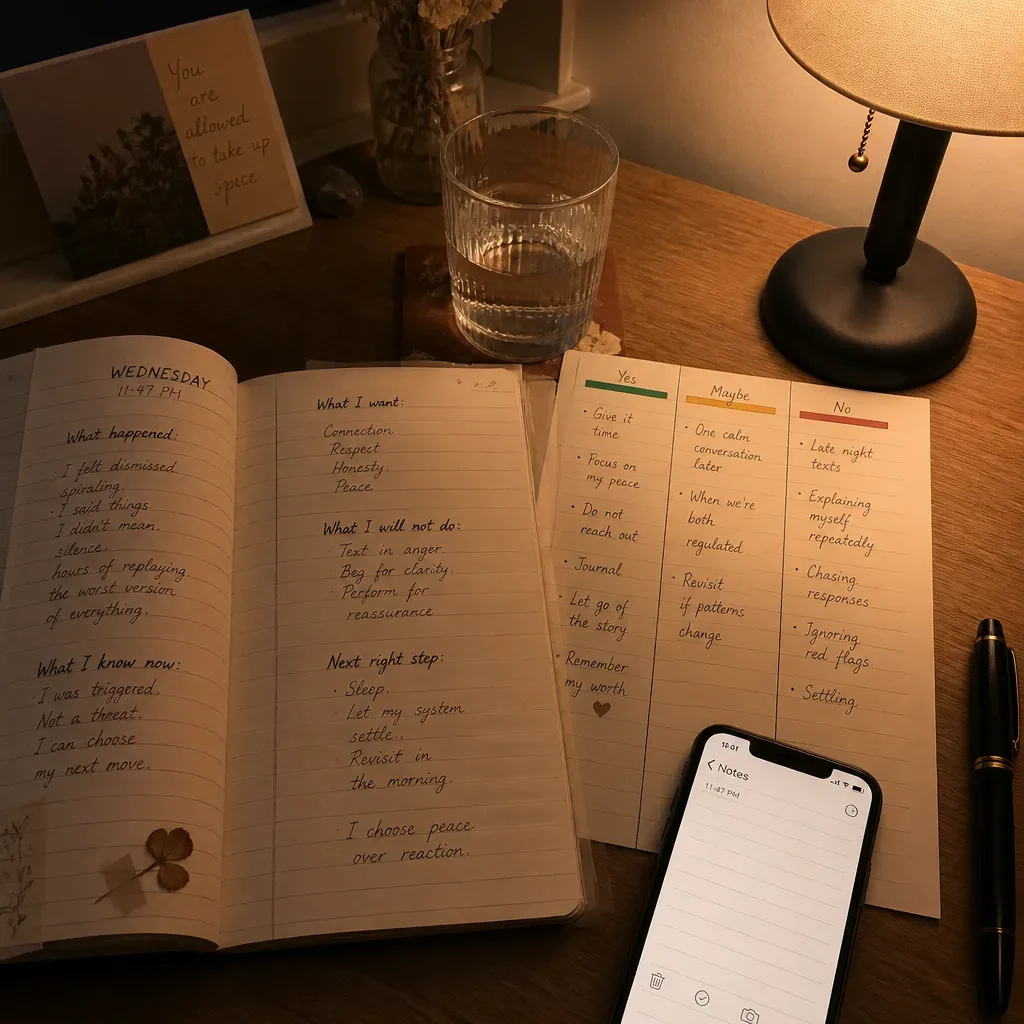 You
are
allowed
to take up
space
WEDNESDAY
11:47 PM
What happened:
I felt dismissed
spiraling.
· I said things
I didn't mean.
silence.
hours of replaying
the worst version
of everything.
What I know now:
· I was triggered.
Not a threat.
I can choose
my next move.
What I want:
Connection
Respect
Honesty.
Peace
What I will not do:
· Text in anger
Beg for clarity.
· Perform for
reassurance
Next right step:
· Sleep.
· Let my system
settle..
· Revisit in
the morning.
· I choose peace
over reaction.
Yes
• Give it
time
• Focus on
my peace
• Do not
reach out
• Journal
• Let go of
the story.
• Remember
my worth
Maybe
• One calm
conversation
later
• When we're
both
regulated
• Revisit
if patterns
change
No
• Late night
texts
• Explaining
myself
repeatedly
• Chasing
responses
• Ignoring
red flags
• Settling
Notes
11:47 PM